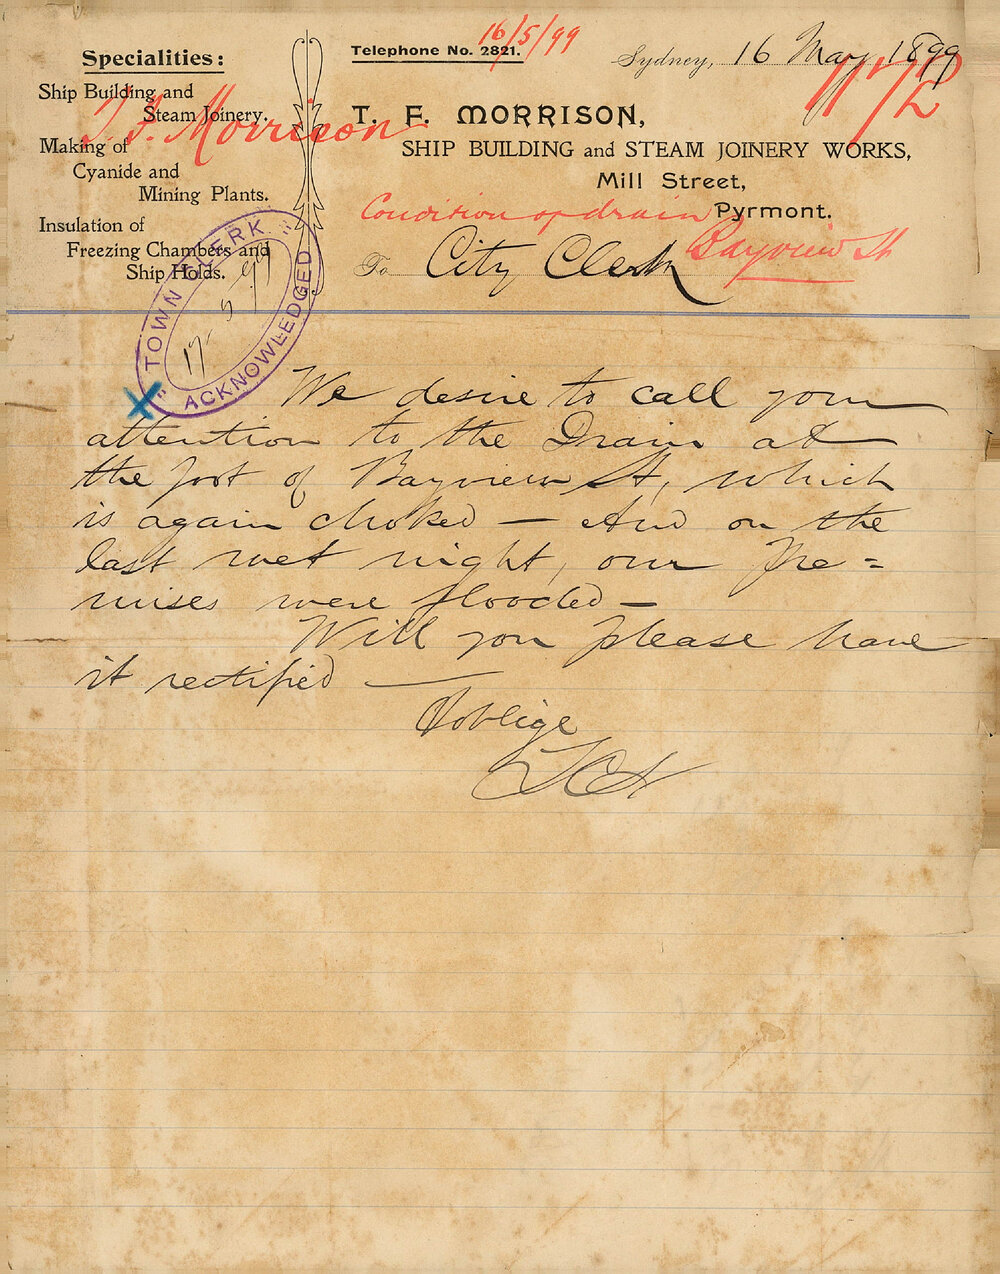 16/5/99
Telephone No. 2821.
Sydney, 16 May 1899
Specialities:
Ship Building and
Steam Joinery.
Making of
Cyanide and
Mining Plants.
Insulation of
Freezing Chambers and
Ship Holds.
T. F. Morrison
T. F. MORRISON,
SHIP BUILDING and STEAM JOINERY WORKS,
Mill Street,
Pyrmont.
Condition of drain
Bayview St
To City Clerk
"TOWN CLERK"
17-5-99
ACKNOWLEDGED
We desire to call your
attention to the Drain at
the foot of Bayview St, which
is again choked – And on the
last wet night, our Pre=
mises were flooded –
Will you please have
it rectified —
& oblige